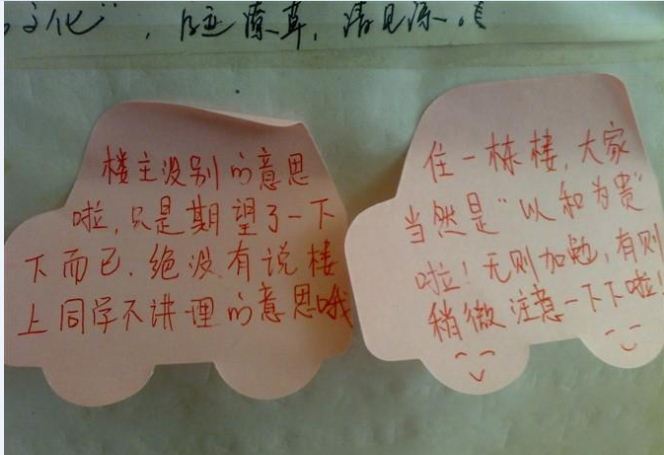 文化”，随潦草，请见谅。
楼主没别的意思
啦，只是期望了一下
下而已．绝没有说楼
上同学不讲理的意思哦
住一栋楼，大家
当然是“以和为贵”
啦！无则加勉，有则
稍微注意一下下啦！